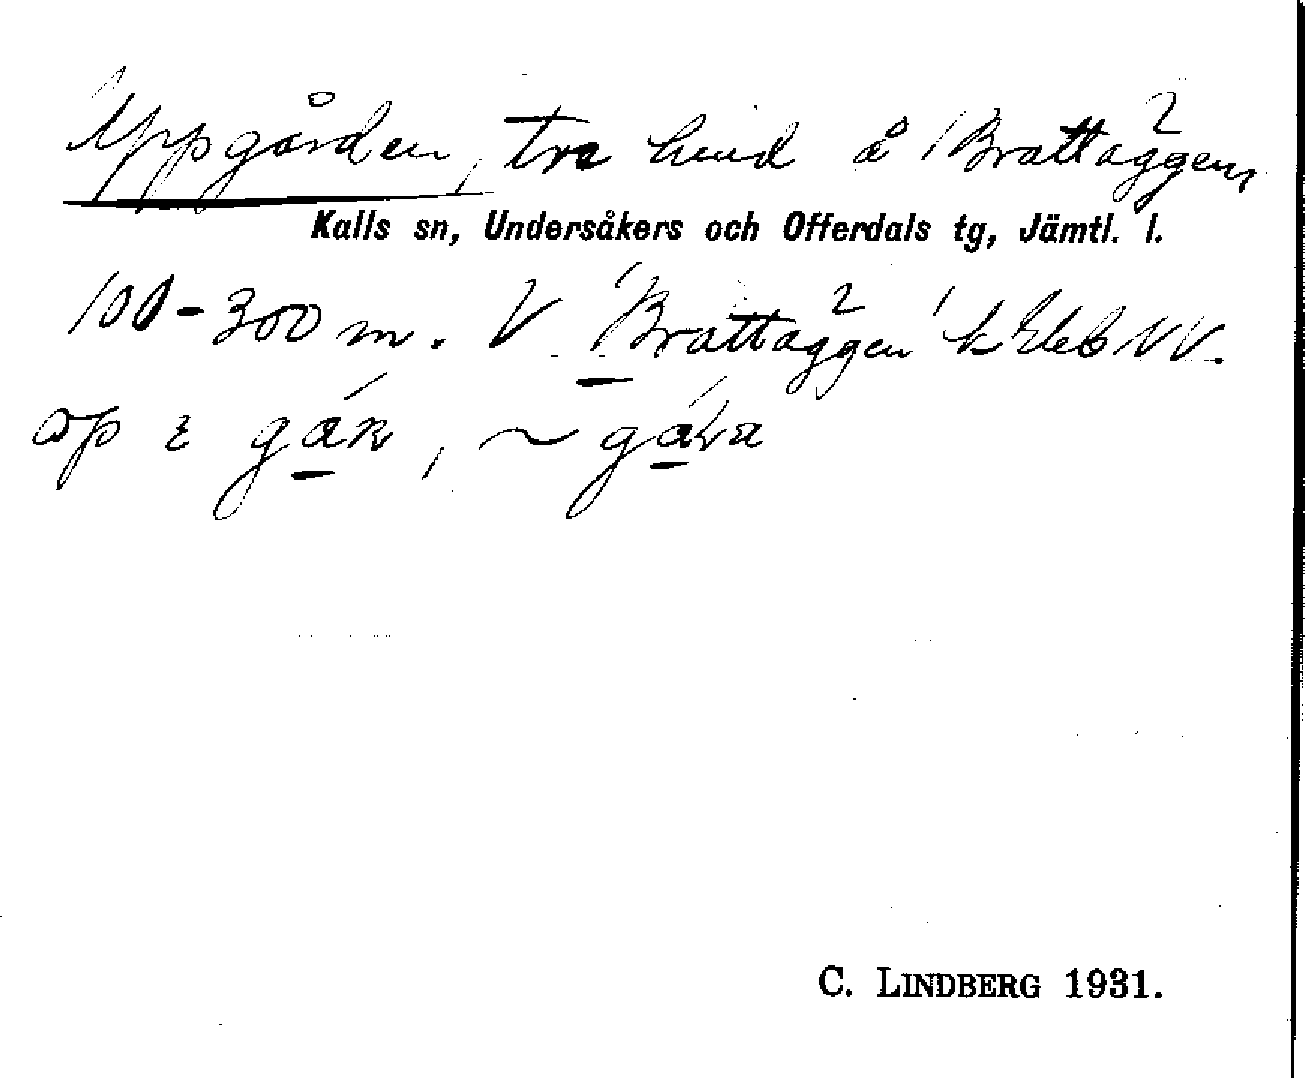 Uppgården, tre hmd å Brattåggen,
Kalls sn, Undersåkers och Offerdals tg, Jämtl. l.
100-300 m. V Brattåggen
gáɴ, ~ gá
C. LINDBERG 1931.